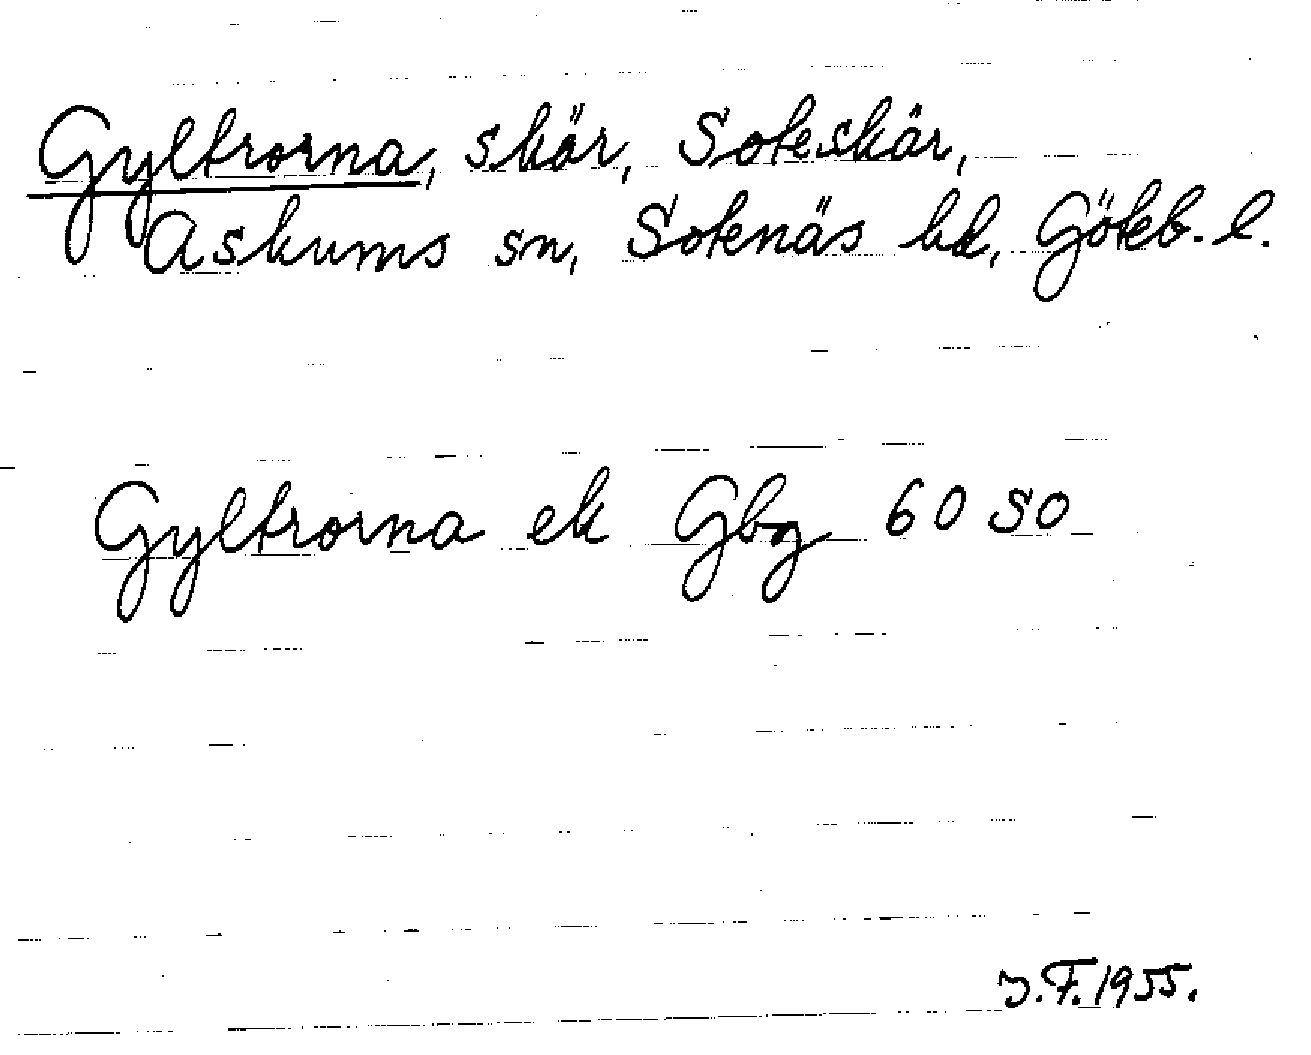 Gyltrorna, skär, Soteskär,
Askums sn, Sotenäs hd, Göteb. l.
Gyltrorna ek Gbg 60 SO
J.F. 1955.